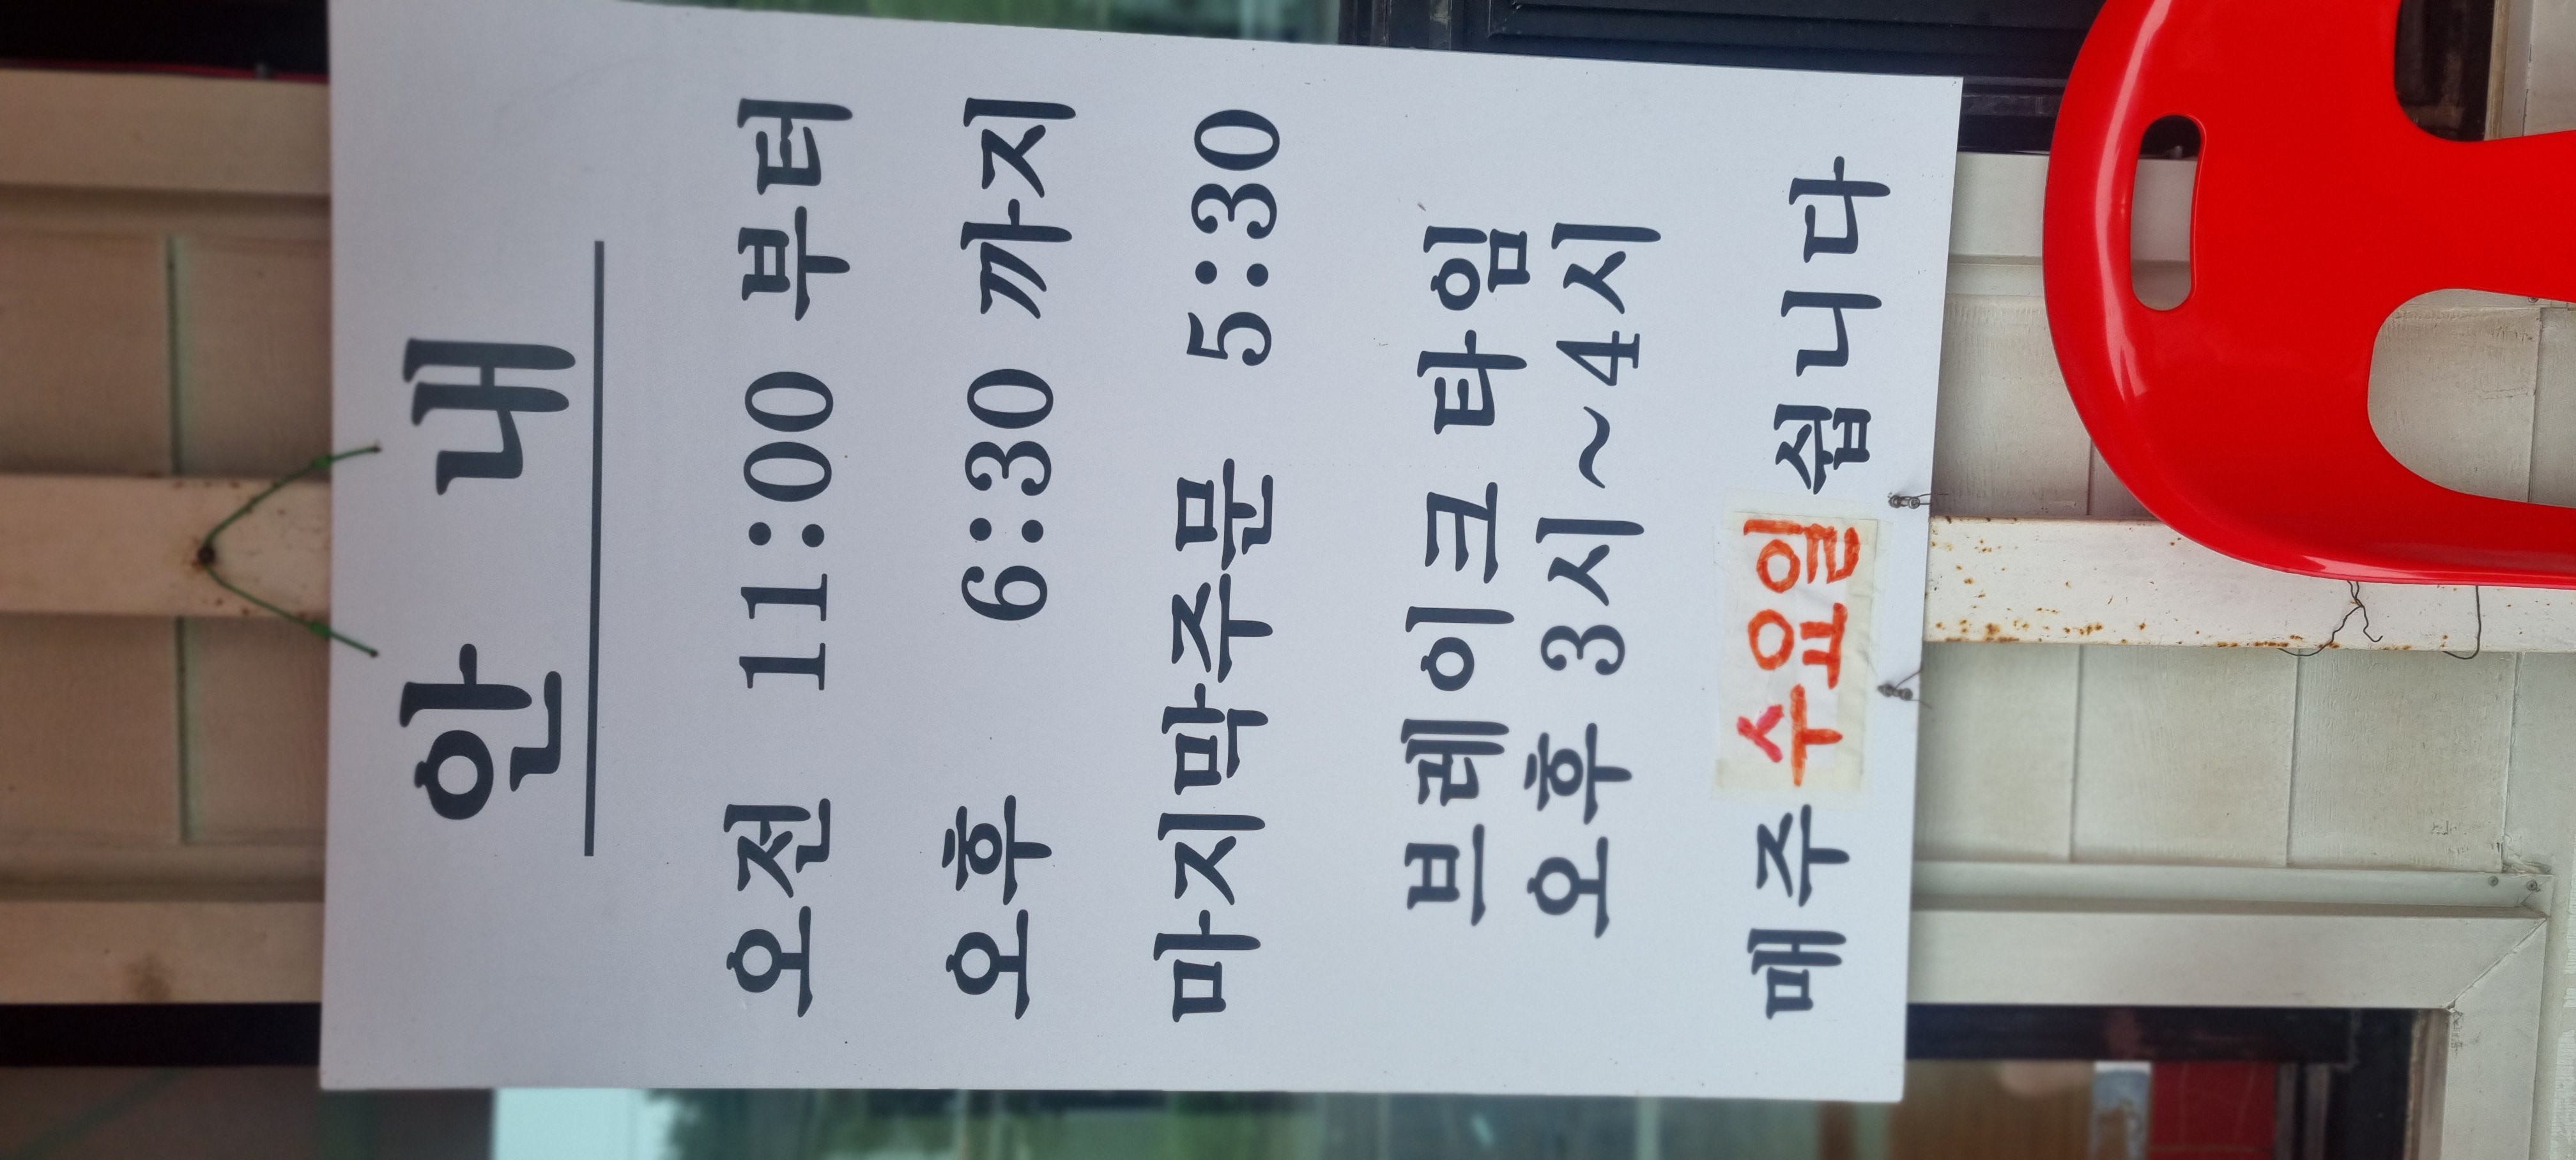 안 내
오전 11:00 부터
오후 6:30 까지
마지막주문 5:30
브레이크 타임
오후 3시~4시
매주 수요일 쉽니다